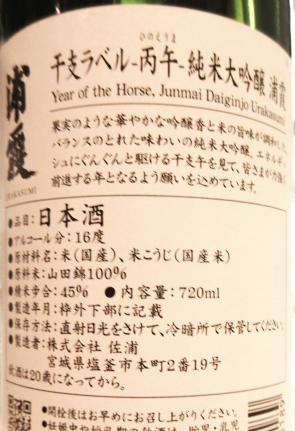 浦霞
URAKASUMI
ひのえうま
干支ラベル-丙午-純米大吟醸 浦霞
Year of the Horse, Junmai Daiginjo Urakasumi
果実のような華やかな吟醸香と米の旨味が調和した
バランスのとれた味わいの純米大吟醸。エネルギッ
シュにぐんぐんと駆ける干支午を見て、皆さまが力強く
前進する年となるよう願いを込めています。
●品目:日本酒
●アルコール分:16度
●原材料名:米(国産)、米こうじ(国産米)
●原料米:山田錦100%
●精米歩合:45% ●内容量:720ml
●製造年月:枠外下部に記載
●保存方法:直射日光をさけて、冷暗所で保管してください。
●製造者:株式会社 佐浦
宮城県塩釜市本町2番19号
飲酒は20歳になってから。
●開栓後はお早めにお召し上がりください。